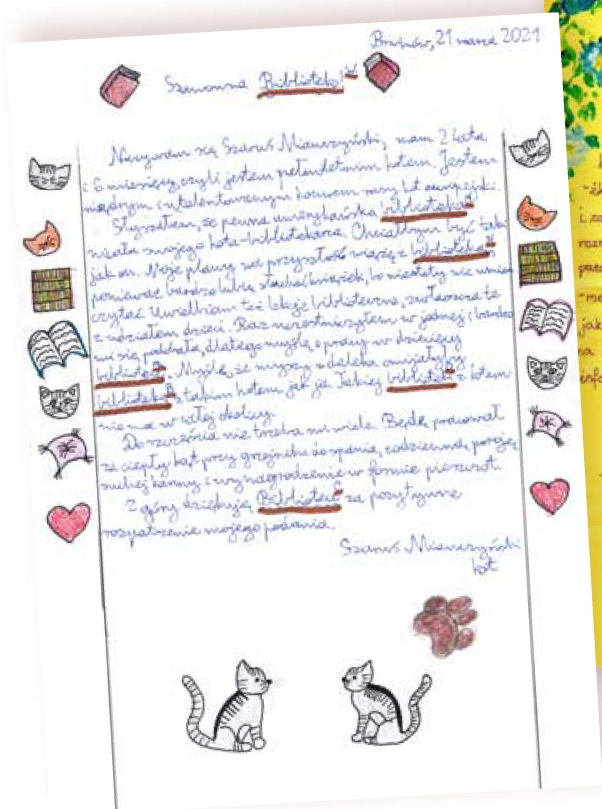 Brwinów, 21 marca 2021
Szanowna Biblioteko!
Nazywam się Szaruś Miauczyński, mam 2 lata
i 6 miesięcy, czyli jestem pełnoletnim kotem. Jestem
mądrym i utalentowanym kocurem rasy kot europejski.
Słyszałem, że pewna amerykańska biblioteka
miała swojego kota-bibliotekarza. Chciałbym być taki
jak on. Moje plany na przyszłość wiążę z biblioteką,
ponieważ bardzo lubię słuchać książek, bo niestety nie umiem
czytać. Uwielbiam też lekcje biblioteczne, zwłaszcza te
z udziałem dzieci. Raz uczestniczyłem w jednej i bardzo
mi się podobała, dlatego myślę o pracy w dziecięcej
bibliotece. Myślę, że myszy z daleka omijałyby
bibliotekę z takim kotem jak ja. Takiej biblioteki z kotem
nie ma w całej okolicy.
Do szczęścia nie trzeba mi wiele. Będę pracował
za ciepły kąt przy grzejniku do spania, codzienną porcję
suchej karmy i wynagrodzenie w formie pieszczot.
Z góry dziękuję Bibliotece za pozytywne
rozpatrzenie mojego podania.
Szaruś Miauczyński
kot